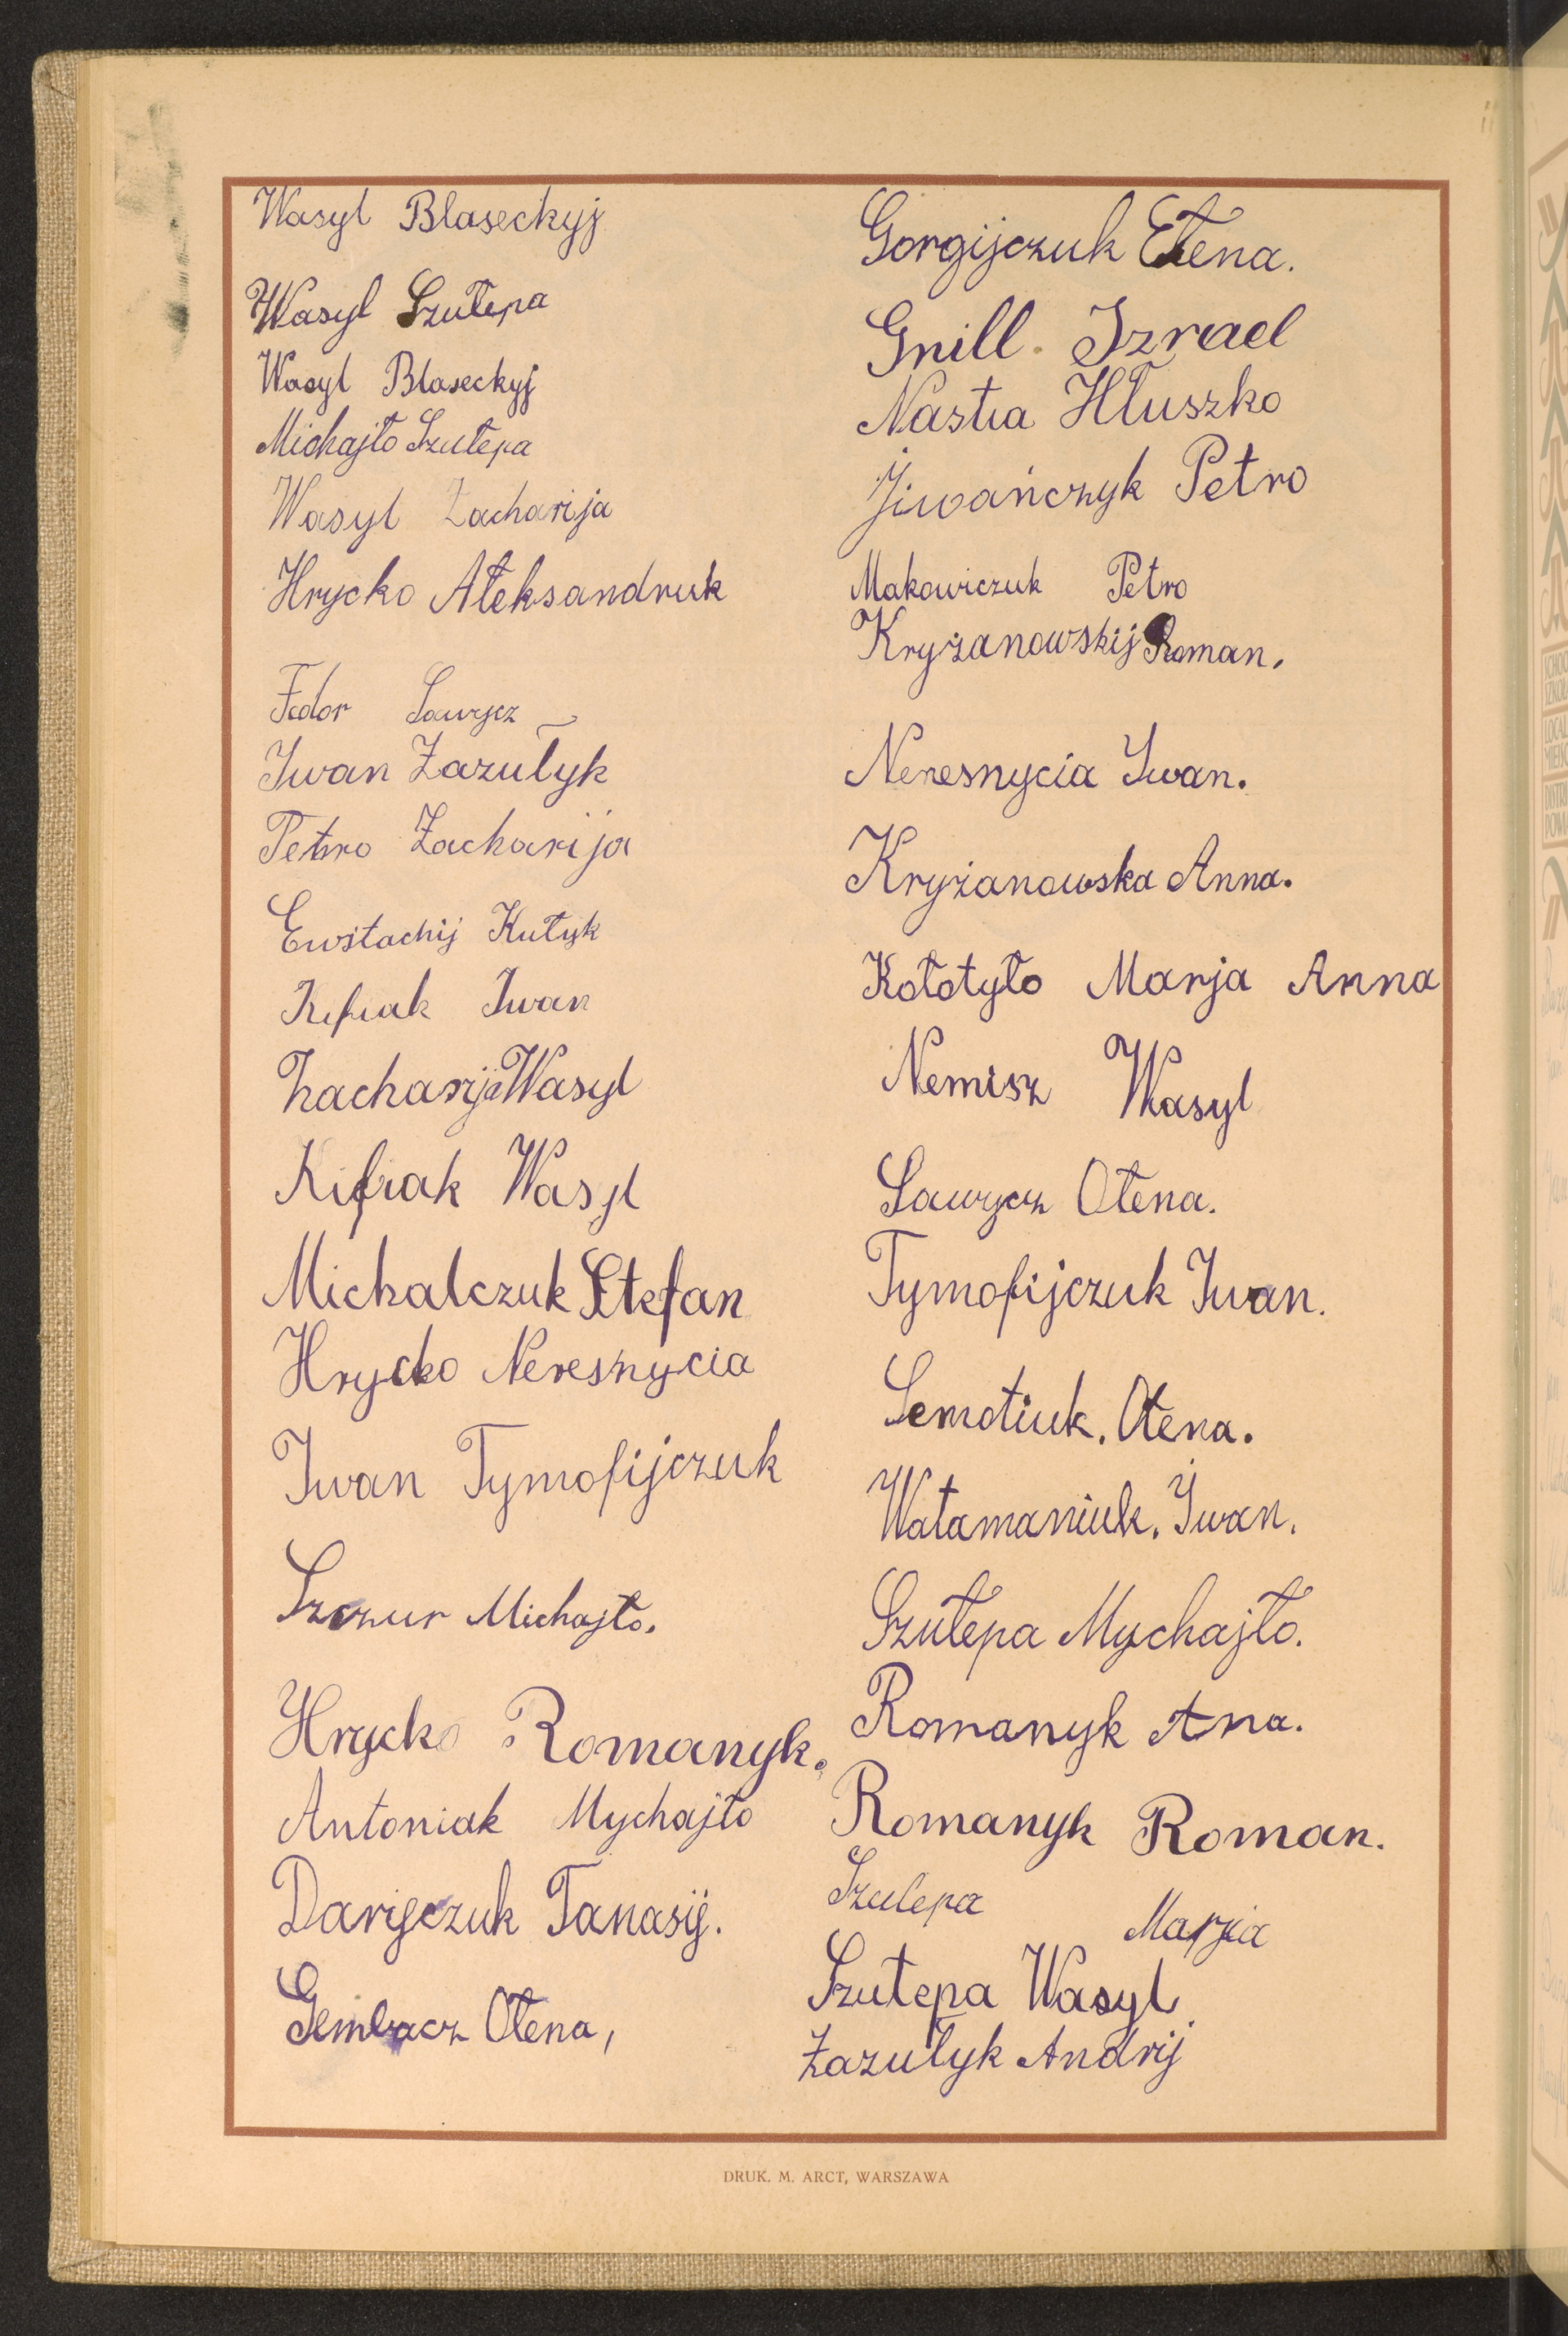 Wasyl Blaseckyj
Wasyl Szułepa
Wasyl Blaseckyj
Michajło Szułepa
Wasyl Zacharija
Hrycko Ałeksandruk
Fedor Sawycz
Iwan Zazułyk
Petro Zacharija
Ewstachij Kułyk
Kifiak Iwan
Zacharija Wasyl
Kifiak Wasyl
Michalczuk Stefan
Hrycko Neresnycia
Iwan Tymofijczuk
Szczur Michajło.
Hrycko Romanyk.
Antoniak Mychajło
Daryjczuk Tanasij.
Gembacz Ołena,
Gorgijczuk Ełena.
Gnill. Izrael
Nastia Hłuszko
Jiwańczyk Petro
Makowiczuk Petro
Kryżanowskij Roman.
Neresnycia Iwan.
Kryżanowska Anna.
Kołotyło Marja Anna
Nemisz Wasyl
Sawycz Ołena.
Tymofijczuk Iwan.
Semotiuk. Ołena.
Watamaniuk. Iwan.
Szułepa Mychajło.
Romanyk Ana.
Romanyk Roman.
Szulepa Marjia
Szułepa Wasyl
Zazułyk Andrij
DRUK. M. ARCT, WARSZAWA